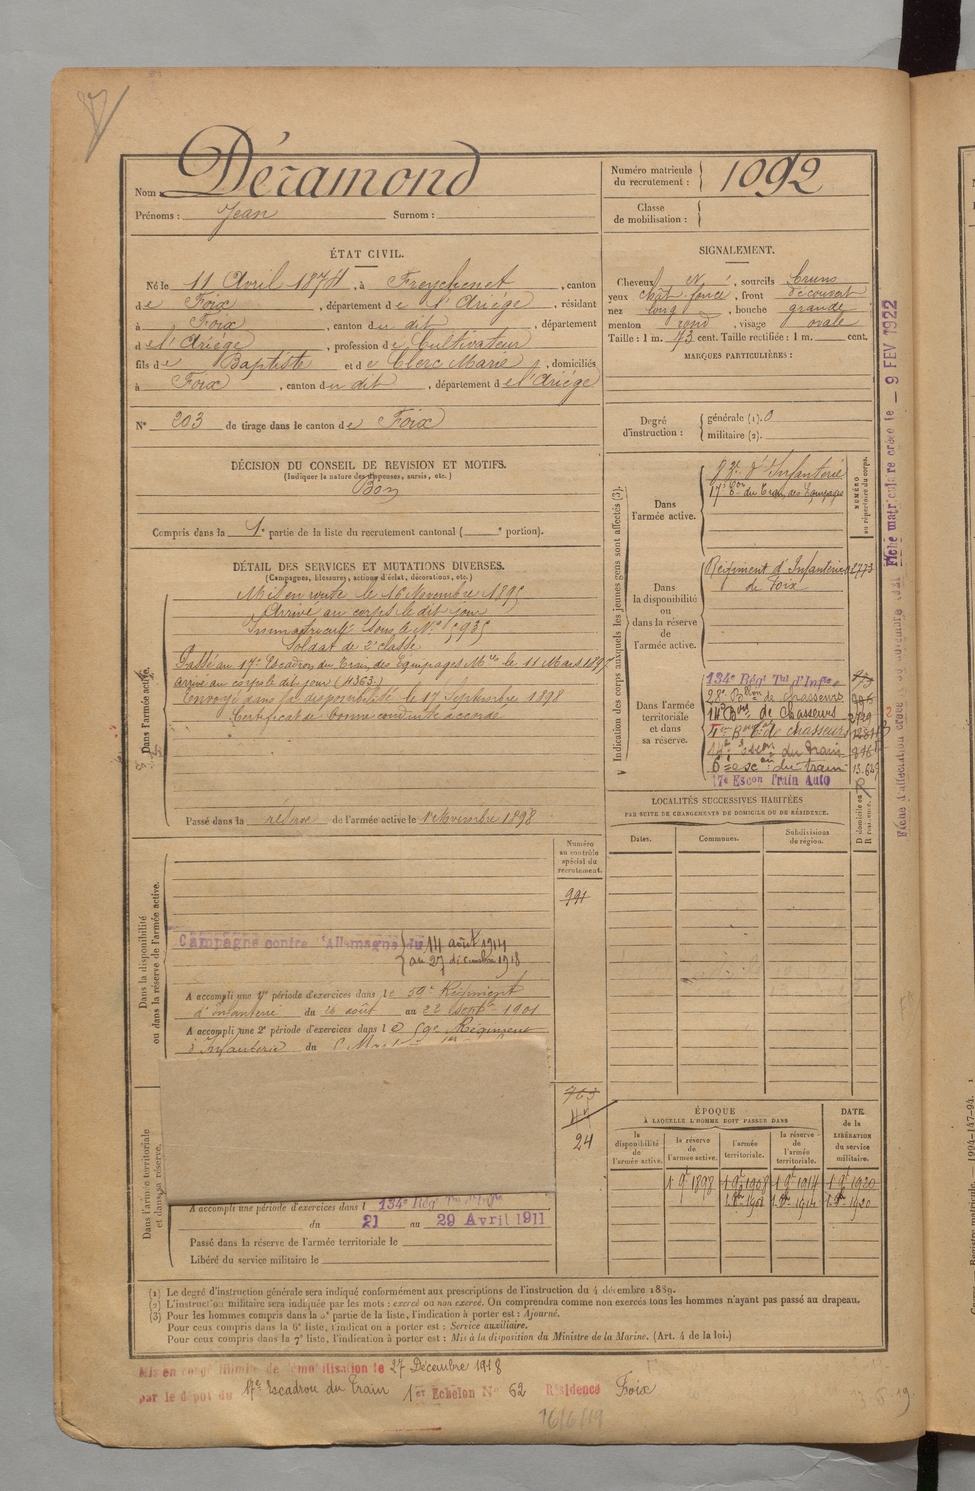 Nom : Déramond
Prénoms : Jean Surnom :
Numéro matricule du recrutement : 1092
Classe de mobilisation :
ÉTAT CIVIL.
Né le 11 Avril 1874, à Freychenet, canton
de Foix, département de l'Ariége, résidant
à Foix, canton du dit, département
de l'Ariége, profession de Cultivateur
fils de Baptiste et de Clerc Marie, domiciliés
à Foix, canton du dit, département de l'Ariége
N° 203 de tirage dans le canton de Foix
SIGNALEMENT.
Cheveux et, sourcils bruns
yeux chât foncé, front découvert
nez long, bouche grande
menton rond, visage ovale
Taille : 1 m. 73 cent. Taille rectifiée : 1 m. cent.
MARQUES PARTICULIÈRES :
Degré d'instruction : générale (1). 0
militaire (2).
DÉCISION DU CONSEIL DE REVISION ET MOTIFS.
(Indiquer la nature des dispenses, sursis, etc.)
Bon
Compris dans la 1e partie de la liste du recrutement cantonal ( e portion).
DÉTAIL DES SERVICES ET MUTATIONS DIVERSES.
(Campagnes, blessures, actions d'éclat, décorations, etc.)
Dans l'armée active.
Mis en route le 16 Novembre 1895
Arrivé au corps le dit jour
Immatriculé sous le N° 5935
Soldat de 2e classe
Passé au 17e Escadron du Train des Equipages Mres le 11 Mars 1897
arrivé au corps le dit jour (4363)
Envoyé dans la disponibilité le 17 Septembre 1898
Certificat de bonne conduite accordé
Passé dans la réserve de l'armée active le 1er Novembre 1898
Indication des corps auxquels les jeunes gens sont affectés (3).
NUMÉRO au répertoire du corps.
Dans l'armée active.
93e d'Infanterie
17e Eon du Train des Equipages
Dans la disponibilité ou dans la réserve de l'armée active.
Régiment d'Infanterie 2773
de Foix
Dans l'armée territoriale et dans sa réserve.
134e Régt Tal d'Infie
28e Bllon de chasseurs
14e Bon de Chasseurs
de chasseurs
14e escon du train
6e esc on du train 13.649
17e Escon Train Auto
LOCALITÉS SUCCESSIVES HABITÉES
PAR SUITE DE CHANGEMENTS DE DOMICILE OU DE RÉSIDENCE.
D domicile ou R résidence.
Dates. Communes. Subdivisions de région.
Dans la disponibilité ou dans la réserve de l'armée active.
Numéro au contrôle spécial du recrutement.
991
Campagne contre l'Allemagne du 14 août 1914
au 27 décembre 1918
A accompli une 1re période d'exercices dans le 59e Régiment
d'infanterie du 26 août au 22 septbre 1901
A accompli une 2e période d'exercices dans le 59e Régiment
d'Infanterie du
Dans l'armée territoriale et dans sa réserve.
763
24
A accompli une période d'exercices dans l 134e Rég Tal d'Infie
du 21 au 29 Avril 1911
Passé dans la réserve de l'armée territoriale le
Libéré du service militaire le
ÉPOQUE
À LAQUELLE L'HOMME DOIT PASSER DANS
la disponibilité de l'armée active.
la réserve de l'armée active.
l'armée territoriale.
la réserve de l'armée territoriale.
DATE de la LIBÉRATION du service militaire.
1 9t 1898 1 9t 1908 1 9t 1914 1 9t 1920
Fiche matricule créée le – 9 FEV 1922
(1) Le degré d'instruction générale sera indiqué conformément aux prescriptions de l'instruction du 4 décembre 1889.
(2) L'instruction militaire sera indiquée par les mots : exercé ou non exercé. On comprendra comme non exercés tous les hommes n'ayant pas passé au drapeau.
(3) Pour les hommes compris dans la 5e partie de la liste, l'indication à porter est : Ajourné.
Pour ceux compris dans la 6e liste, l'indication à porter est : Service auxiliaire.
Pour ceux compris dans la 7e liste, l'indication à porter est : Mis à la disposition du Ministre de la Marine. (Art. 4 de la loi.)
Mis en congé illimité de démobilisation le 27 Décembre 1918
par le dépôt du 17e Escadron du Train 1er Echelon N° 62 Résidence Foix
16/6/19